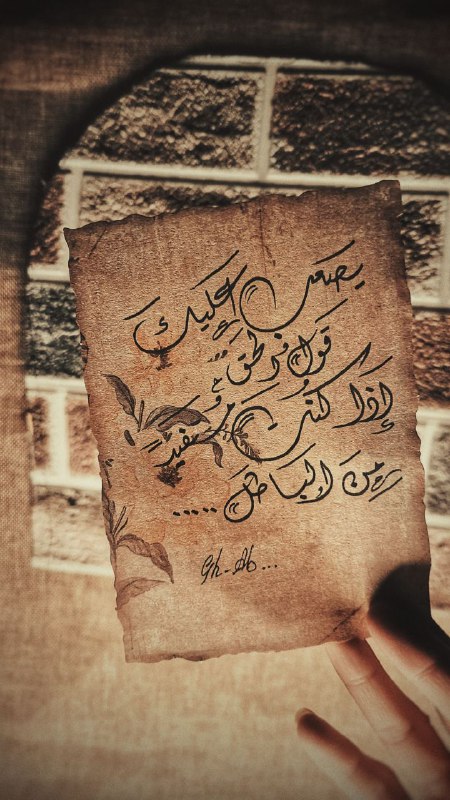 يصعب عليك
قول الحق
إذا كنت مستفيدً
من الباطل .....
Gh-Ab...